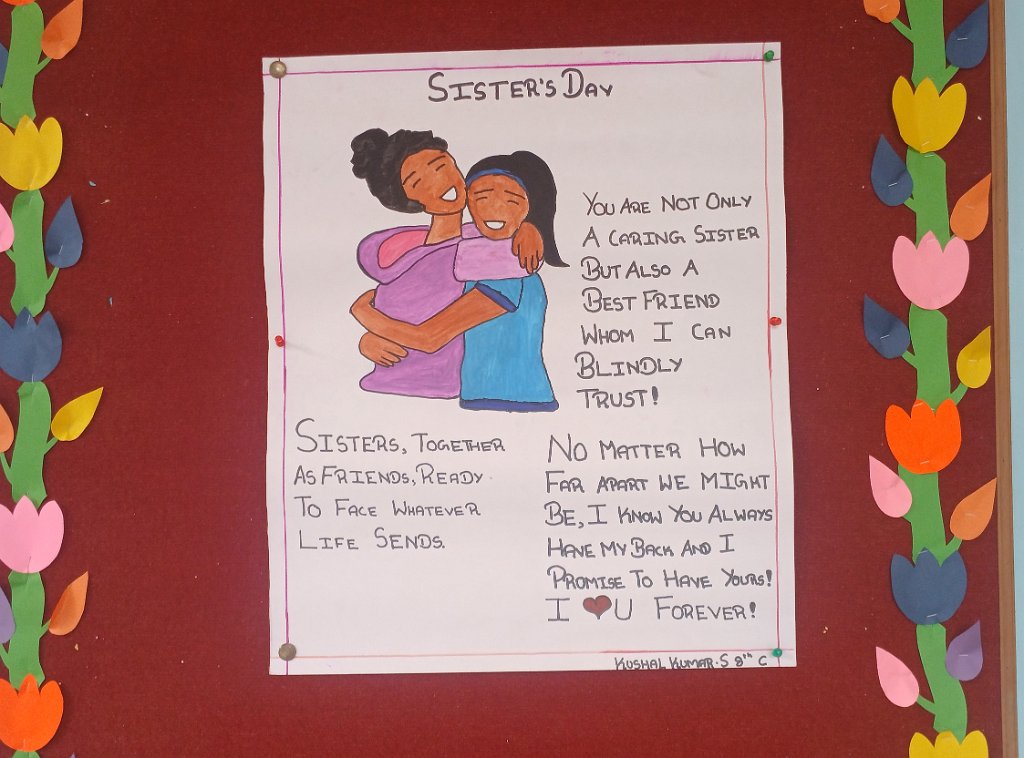 SISTER'S DAY
YOU ARE NOT ONLY
A CARING SISTER
BUT ALSO A
BEST FRIEND
WHOM I CAN
BLINDLY
TRUST!
SISTERS, TOGETHER
AS FRIENDS, READY
TO FACE WHATEVER
LIFE SENDS.
NO MATTER HOW
FAR APART WE MIGHT
BE, I KNOW YOU ALWAYS
HAVE MY BACK AND I
PROMISE TO HAVE YOURS!
I ❤U FOREVER!
KUSHAL KUMAR.S 8TH C